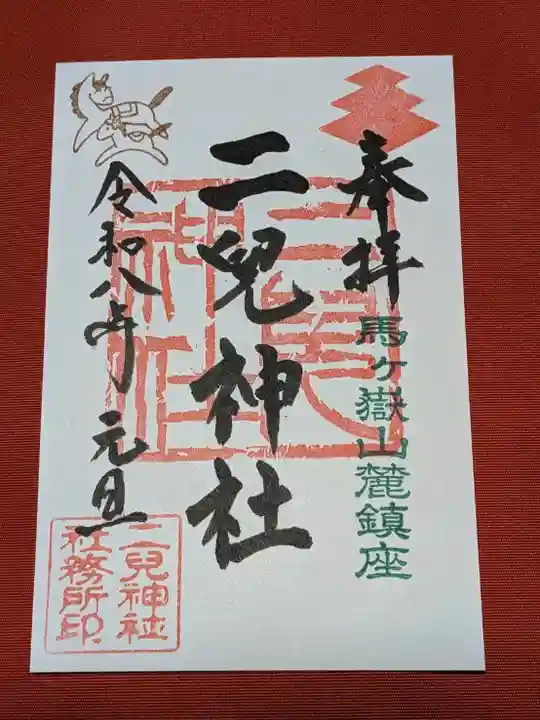 奉拝
馬ヶ嶽山麓鎮座
二兒神社
二兒神社
令和八年元旦
二兒神社
社務所印